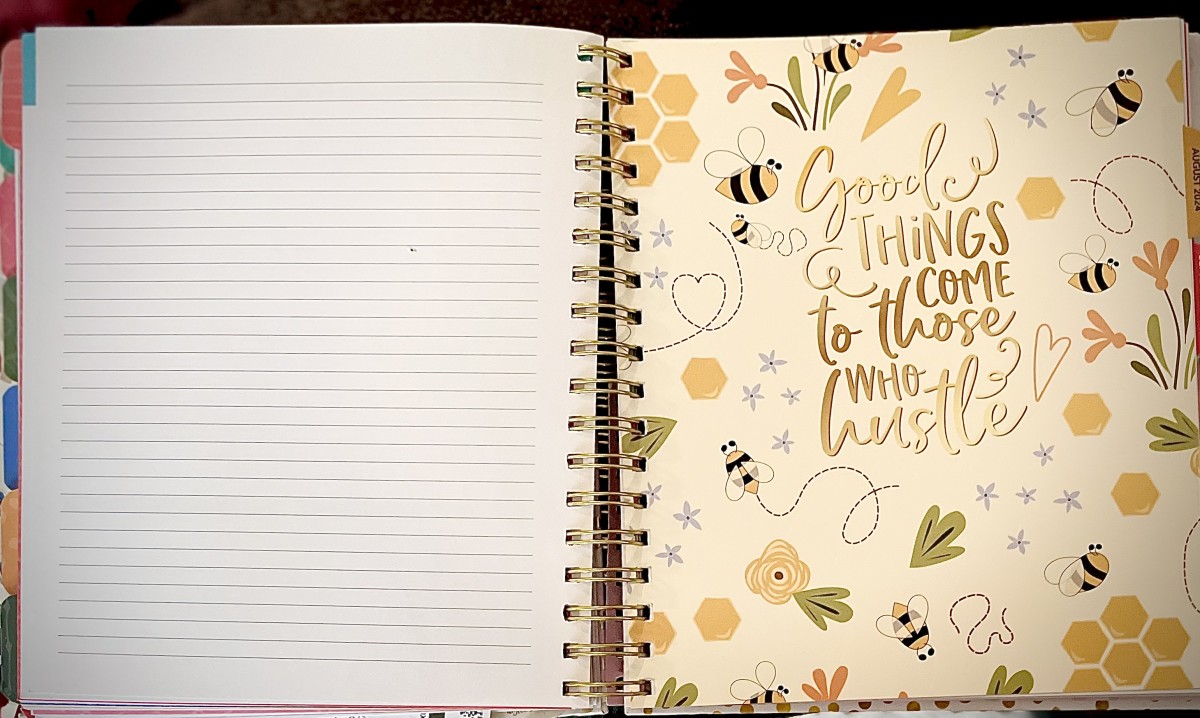 Good
THiNGS
COME
to those
WHO
hustle
AUGUST 2024